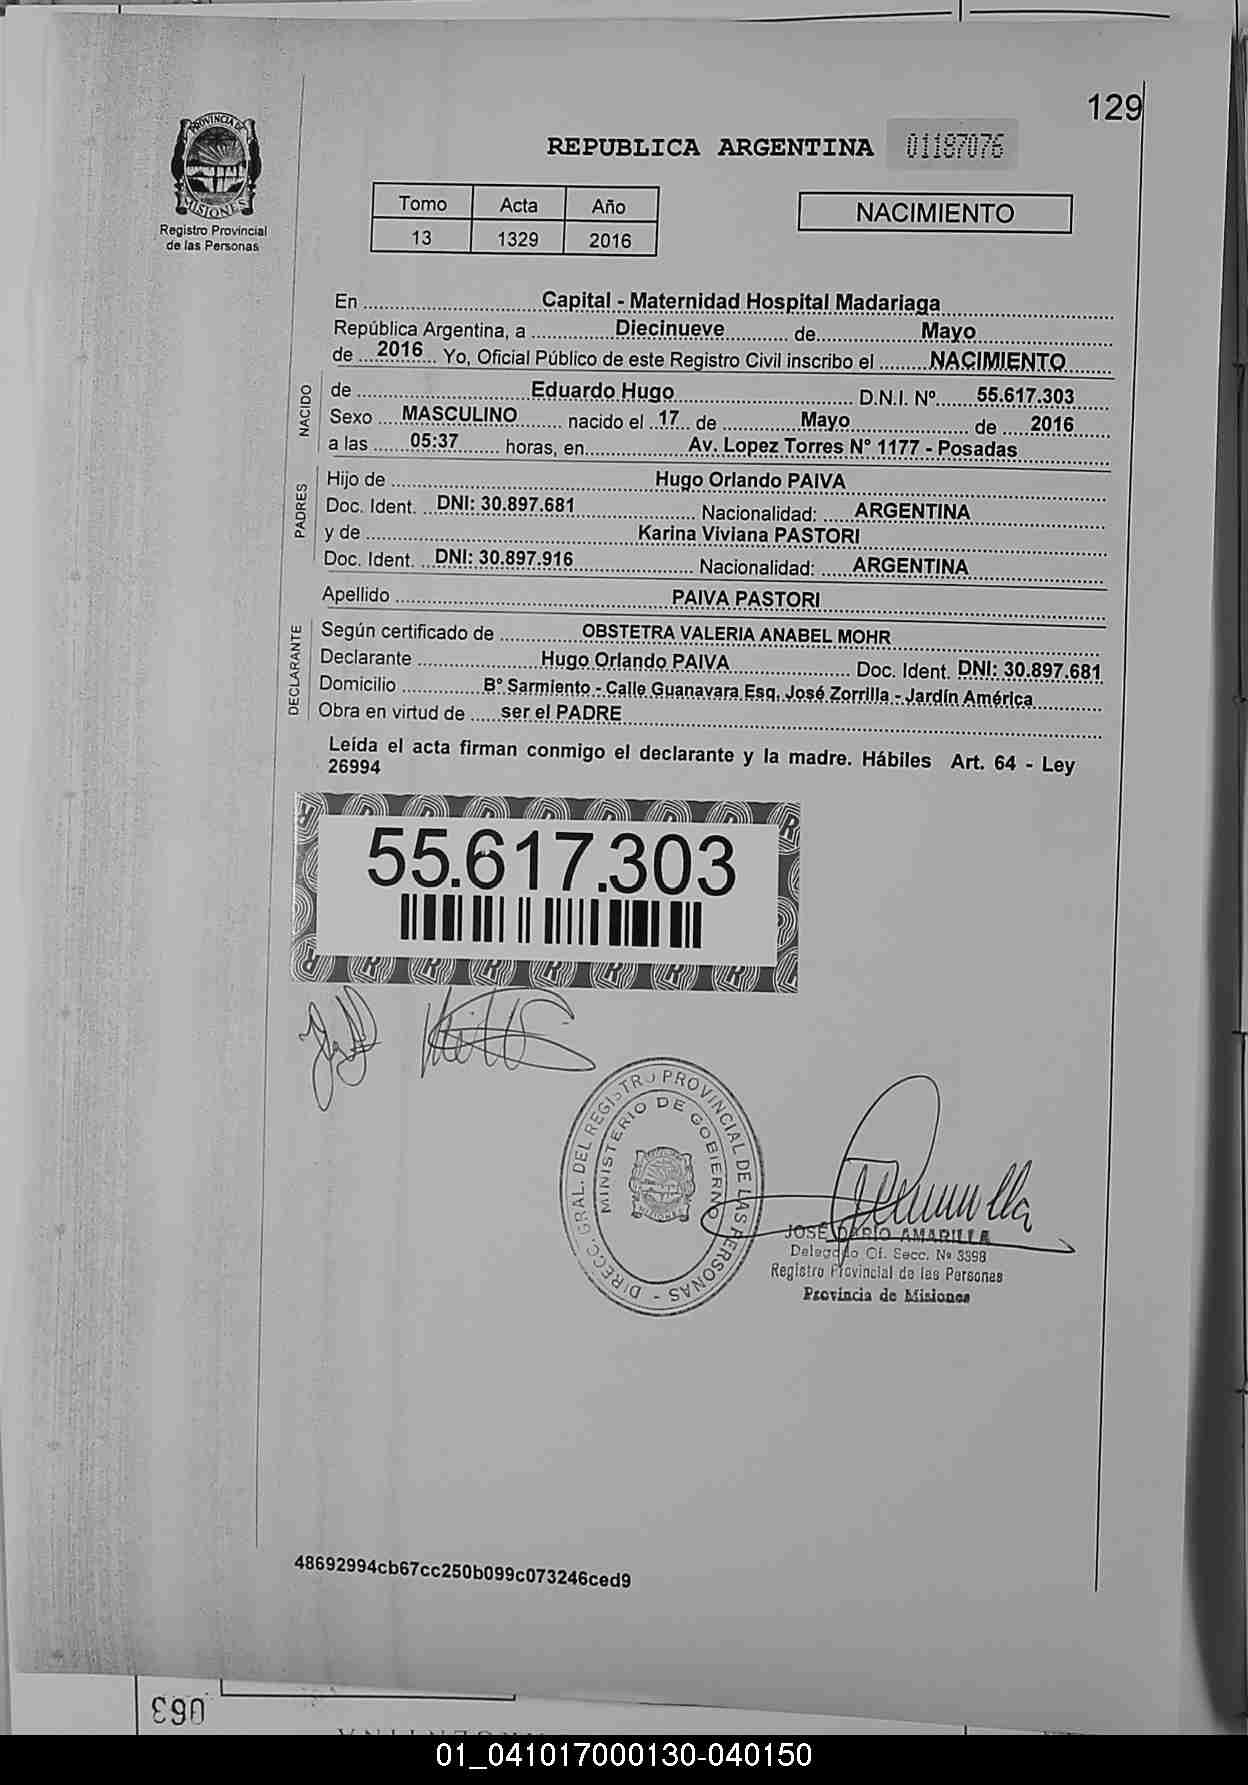 129
PROVINCIA DE
MISIONES
Registro Provincial
de las Personas
REPUBLICA ARGENTINA 01187076
Tomo Acta Año
13 1329 2016
NACIMIENTO
En Capital - Maternidad Hospital Madariaga
República Argentina, a Diecinueve de Mayo
de 2016 Yo, Oficial Público de este Registro Civil inscribo el NACIMIENTO
NACIDO
de Eduardo Hugo D.N.I. Nº 55.617.303
Sexo MASCULINO nacido el 17 de Mayo de 2016
a las 05:37 horas, en Av. Lopez Torres N° 1177 - Posadas
PADRES
Hijo de Hugo Orlando PAIVA
Doc. Ident. DNI: 30.897.681 Nacionalidad: ARGENTINA
y de Karina Viviana PASTORI
Doc. Ident. DNI: 30.897.916 Nacionalidad: ARGENTINA
Apellido PAIVA PASTORI
DECLARANTE
Según certificado de OBSTETRA VALERIA ANABEL MOHR
Declarante Hugo Orlando PAIVA Doc. Ident. DNI: 30.897.681
Domicilio B° Sarmiento - Calle Guanavara Esq. José Zorrilla - Jardín América
Obra en virtud de ser el PADRE
Leída el acta firman conmigo el declarante y la madre. Hábiles Art. 64 - Ley
26994
55.617.303
DIRECC. GRAL. DEL REGISTRO PROVINCIAL DE LAS PERSONAS -
MINISTERIO DE GOBIERNO
MISIONES
JOSÉ DARÍO AMARILLA
Delegado Of. Secc. Nº 3398
Registro Provincial de las Personas
Provincia de Misiones
48692994cb67cc250b099c073246ced9
063
01_041017000130-040150